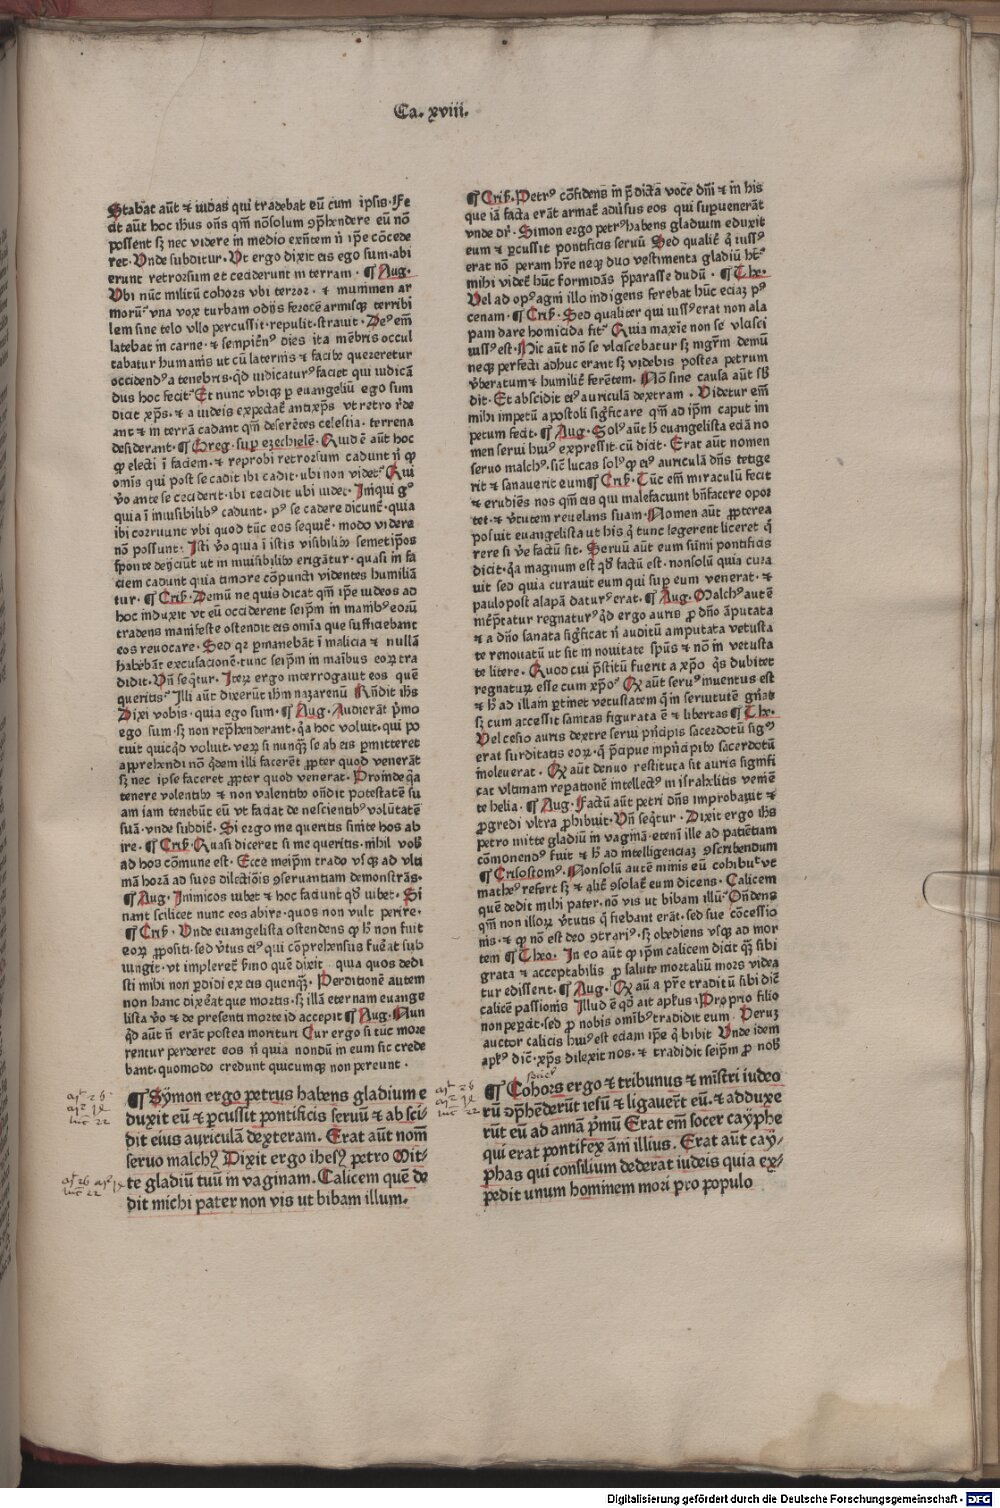 Ca. xviii.
Stabat aūt ⁊ iudas qui tradebat eū cum ipsis. Fe
cit aūt hoc ihūs oñs qm̄ nōsolum ꝯphendere eū nō
possent sꝫ nec videre in medio exñtem n̄ ip̄e cōcede
ret. Vnde subditur. Vt ergo dixit eis ego sum. abi
erunt retrorsum et ceciderunt in terram. ¶ Aug.
Vbi nūc militū cohors vbi terror. ⁊ mummen ar
morū? vna vox turbam odijs ferocē armisqꝫ terribi
lem sine telo vllo percussit. repulit. strauit. Deꝰ em̄
latebat in carne. ⁊ sempitnꝰ dies ita mēbris occul
tabatur humanis ut cū laternis ⁊ facibꝰ quereretur
occidendꝰ a tenebris. qd iudicaturꝰ faciet qui iudicā
dus hoc fecit? Et nunc vbiqꝫ ꝑ euangeliū ego sum
dicit xp̄s. ⁊ a iudeis expectat̄ antixp̄s vt retro r̄de
ant ⁊ in terrā cadant qm̄ deserētes celestia. terrena
desiderant. ¶ Greg. suꝑ ezechielē. Quid ē aūt hoc
ꝙ electi ī faciem. ⁊ reprobi retrorsum cadunt n̄ ꝙ
om̄is qui post se cadit ibi cadit. ubi non videt? Qui
v̄o ante se ceciderit. ibi cecidit ubi uidet. Iniqui gͦ
quia ī inuisibilibꝰ cadunt. pꝰ se cadere dicunt̄. quia
ibi corruunt vbi quod tūc eos sequit̄. modo videre
nō possunt. Isti v̄o quia ī istis visibilibꝰ semetip̄os
sponte deijciūt ut in inuisibilibꝰ erigātur. quasi in fa
ciem cadunt quia timore cōpuncti videntes humiliā
tur. ¶ Criſ̄. Demū ne quis dicat qm̄ ip̄e iudeos ad
hoc induxit vt eū occiderent seip̄m in manibꝰ eorū
tradens manifeste ostendit eis om̄ia que sufficiebant
eos reuocare. Sed qꝛ ꝑmanebāt ī malicia ⁊ nullā
habebāt excusationē. tunc seip̄m in maibus eoꝝ tra
didit. Vn̄ seqͥtur. Iteꝝ ergo interrogauit eos quē
queritis? Illi aūt dixerūt ih̄m nazarenū Rn̄dit ih̄s
Dixi vobis. quia ego sum. ¶ Aug. Audierāt pͥmo
ego sum. sꝫ non rep̄henderant. qͥa hoc voluit. qui po
tuit quicqͥd voluit. veꝝ si nunqꝫ se ab eis ꝑmitteret
apprehendi nō qͥdem illi facerēt ꝓpter quod venerāt
sꝫ nec ipse faceret ꝓpter quod venerat. Proinde qͥa
tenere volentibꝰ ⁊ non valentibꝰ on̄dit potestatē su
am iam tenebūt eū vt faciat de nescientibꝰ volūtatē
suā. vnde subdit̄. Si ergo me queritis sinite hos ab
ire. ¶ Criſ̄. Quasi diceret si me queritis. nihil vob̄
ad hos cōmune est. Ecce meip̄m trado vsqꝫ ad vlti
mā horā ad suos dilectiōis ꝯseruantiam demonstrās.
¶ Aug. Inimicos iubet ⁊ hoc faciunt qd̄ iubet. Si
nant scilicet nunc eos abire. quos non vult perire.
¶ Criſ̄. Vnde euangelista ostendens ꝙ h̄ non fuit
eoꝝ ꝓpositi. sed v̄tus eiꝰ qui cōprehensus fuēat sub
iungit. vt impleret̄ sͬmo quē dixit quia quos dedi
sti mihi non ꝑdidi ex eis quenqꝫ. Perditionē autem
non hanc dixēat que mortis. sꝫ illā eternam euange
lista v̄o ⁊ de presenti morte id accepit ¶ Aug. Nun
qͥd aūt n̄ erāt postea morituri Cur ergo si tūc more
rentur perderet eos n̄ quia nondū in eum sic crede
bant. quomodo credunt quicumqꝫ non pereunt.
¶ Sȳmon ergo petrus habens gladium e
duxit eū ⁊ ꝑcussit pontificis seruū ⁊ absci-
dit eius auriculā dexteram. Erat aūt nom̄
seruo malchꝰ Dixit ergo ihesꝰ petro Mit-
te gladiū tuū in vaginam. Calicem quē de
dit michi pater non vis ut bibam illum.
¶ Criſ̄. Petrꝰ cōfidens in p̄dicta voce dn̄i ⁊ in his
que iā facta erāt armat̄ aduīsus eos qui supuenerāt
vnde dr̄. Simon ergo petrꝰ habens gladium eduxit
eum ⁊ ꝑcussit pontificis seruū Sed qualit̄ qͥ iussꝰ
erat nō peram hr̄e neqꝫ duo vestimenta gladiū hꝫ?
mihi videt̄ hūc formidās p̄parasse dudū. ¶ The.
Vel ad opꝰ agni illo indigens ferebat hūc eciaꝫ pꝰ
cenam. ¶ Criſ̄. Sed qualiter qui iussꝰ erat non ala
pam dare homicida fit? Quia maxīe non se vlcisci
iussꝰ est. Hic aūt nō se vlciscebatur sꝫ mgr̄m demū
neqꝫ perfecti adhuc erant sꝫ videbis postea petrum
v̄beratum ⁊ humilit̄ ferētem. Nō sine causa aūt sb̄
dit. Et abscidit eiꝰ auriculā dextram. Videtur em̄
mihi impetū apostoli significare qm̄ ad ip̄m caput im
petum fecit. ¶ Aug. Solꝰ aūt h̄ euangelista eciā no
men serui huiꝰ expressit. cū dicit. Erat aūt nomen
seruo malchꝰ. sic̄ lucas solꝰ ꝙ eiꝰ auriculā dn̄s tetige
rit ⁊ sanauerit eum ¶ Criſ̄. Tūc em̄ miraculū fecit
⁊ erudiēs nos qm̄ eis qui malefaciunt bn̄facere opor
tet. ⁊ v̄tutem reuelans suam. Nomen aūt ꝓpterea
posuit euangelista ut his qͥ tunc legerent liceret q̄
rere si v̄e factū sit. Seruū aūt eum sūmi pontificis
dicit. qͥa magnum est qd̄ factū est. nonsolū quia cura
uit sed quia curauit eum qui suꝑ eum venerat. ⁊
paulo post alapā daturꝰ erat. ¶ Aug. Malchꝰ autē
int̄ptatur regnaturꝰ. qͥd ergo auris ꝓ dn̄o āputata
⁊ a dn̄o sanata significat n̄ auditū amputata vetusta
te renouatū ut sit in nouitate spūs ⁊ nō in vetusta
te litere. Quod cui p̄stitū fuerit a xp̄o qͥs dubitet
regnatuꝝ esse cum xp̄o? Qꝛ aūt seruꝰ inuentus est
⁊ h̄ ad illam ꝑtinet vetustatem qͥ in seruitutē gn̄at
sꝫ cum accessit sanitas figurata ē ⁊ libertas ¶ The.
Vel cesio auris dextre serui pͥncipis sacerdotū signꝰ
erat surditatis eoꝝ. qͥ p̄cipue in pͥncipibꝰ sacerdotū
inoleuerat. Qꝛ aūt denuo restituta sit auris signifi
cat vltimam reꝑationē intellectꝰ in israhelitis veniē
te helia. ¶ Aug. Factū aūt petri dn̄s improbauit ⁊
ꝓgredi vltra ꝓhibuit. Vn̄ seqͥtur. Dixit ergo ih̄s
petro mitte gladiū in vaginā. eteni ille ad patiētiam
cōmonendꝰ fuit ⁊ h̄ ad intelligenciaꝫ ꝯscribendum
¶ Crisostomꝰ. Nonsolū autē minis eū cohibut vt
matheꝰ refert sꝫ ⁊ alit̄ ꝯsolat̄ eum dicens. Calicem
quē dedit mihi pater. nō vis ut bibam illū? On̄dens
qm̄ non illoꝝ v̄tutis q̄ fiebant erāt. sed sue cōcessio
nis. ⁊ ꝙ nō est deo ꝯtrariꝰ. sꝫ obediens vsqꝫ ad mor
tem ¶ Theo. In eo aūt ꝙ ip̄m calicem dicit qꝫ sibi
grata ⁊ acceptabilis ꝓ salute mortaliū mors videa
tur edisserit. ¶ Aug. Qꝛ aū a pr̄e traditū sibi diē
calicē passionis Illud ē qd̄ ait aptus Proprio filio
non peꝑcit. sed ꝓ nobis om̄ibꝰ tradidit eum Veruꝫ
auctor calicis huiꝰ est eciam ip̄e qͥ bibit Vnde idem
aptꝰ dic̄. xp̄s dilexit nos. ⁊ tradidit seip̄m ꝓ nob̄
¶ Cohors ergo ⁊ tribunus ⁊ mīstri iudeo
rū ꝯp̄hēderūt iesū ⁊ ligauer̄t eū. ⁊ adduxe
rūt eū ad annā pͥmū Erat em̄ socer caȳphe
qui erat pontifex āni illius. Erat aūt caȳ-
phas qui consilium dederat iudeis quia ex-
pedit unum hominem mori pro populo
Digitalisierung gefördert durch die Deutsche Forschungsgemeinschaft - DFG